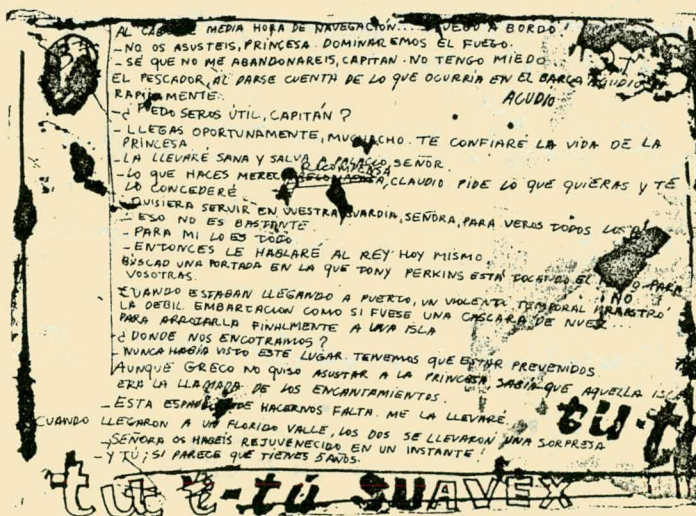 AL CABO DE MEDIA HORA DE NAVEGACIÓN.... FUEGO A BORDO!
- NO OS ASUSTEIS, PRINCESA. DOMINAREMOS EL FUEGO.
- SÉ QUE NO ME ABANDONAREIS, CAPITAN. NO TENGO MIEDO
EL PESCADOR, AL DARSE CUENTA DE LO QUE OCURRIA EN EL BARCO ACUDIO
RAPIDAMENTE. ACUDIO
- ¿PUEDO SEROS ÚTIL, CAPITÁN?
- LLEGAS OPORTUNAMENTE, MUCHACHO. TE CONFIARÉ LA VIDA DE LA
PRINCESA.
- LA LLEVARÉ SANA Y SALVA A PALACIO, SEÑOR.
- LO QUE HACES MERECE RECOMPENSA, CLAUDIO PIDE LO QUE QUIERAS Y TE
LO CONCEDERÉ
- QUISIERA SERVIR EN VUESTRA GUARDIA, SEÑORA, PARA VEROS TODOS LOS
- ESO NO ES BASTANTE
- PARA MI LO ES TODO
- ENTONCES LE HABLARÉ AL REY HOY MISMO.
BUSCAD UNA PORTADA EN LA QUE TONY PERKINS ESTÁ TOCANDO EL PARA
VOSOTRAS. ¡NO!
CUANDO ESTABAN LLEGANDO A PUERTO, UN VIOLENTO TEMPORAL ARRASTRO
LA DEBIL EMBARCACION COMO SI FUESE UNA CASCARA DE NUEZ
PARA ARROJARLA FINALMENTE A UNA ISLA
¿DONDE NOS ENCOTRAMOS?
- NUNCA HABIA VISTO ESTE LUGAR. TENEMOS QUE ESTAR PREVENIDOS.
AUNQUE GRECO NO QUISO ASUSTAR A LA PRINCESA SABIA QUE AQUELLA ISLA
ERA LA LLAMADA DE LOS ENCANTAMIENTOS.
- ESTA ESPADA DE HACERNOS FALTA. ME LA LLEVARÉ
CUANDO LLEGARON A UN FLORIDO VALLE, LOS DOS SE LLEVARON UNA SORPRESA
- SEÑORA OS HABEIS REJUVENECIDO EN UN INSTANTE!
- Y TÚ ¡SI PARECE QUE TIENES 5 AÑOS.
tú-t
tu t t-tú SUAVEX